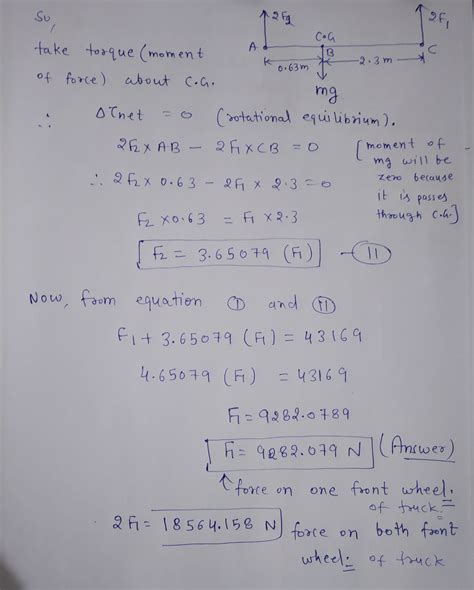 So,
take torque (moment
of force) about C.G.
2F2
2F1
C.G
A
B
C
0.63m
2.3m
mg
∴ Δτnet = 0 (rotational equilibrium).
2F2 × AB - 2F1 × CB = 0
[moment of
mg will be
zero because
it is passes
through C.G.]
∴ 2F2 × 0.63 - 2F1 × 2.3 = 0
F2 × 0.63 = F1 × 2.3
F2 = 3.65079 (F1) - (II)
Now, from equation (I) and (II)
F1 + 3.65079 (F1) = 43169
4.65079 (F1) = 43169
F1 = 9282.0789
F1 = 9282.079 N (Answer)
↑ force on one front wheel.
of truck.
∴ 2F1 = 18564.158 N force on both front
wheel. of truck